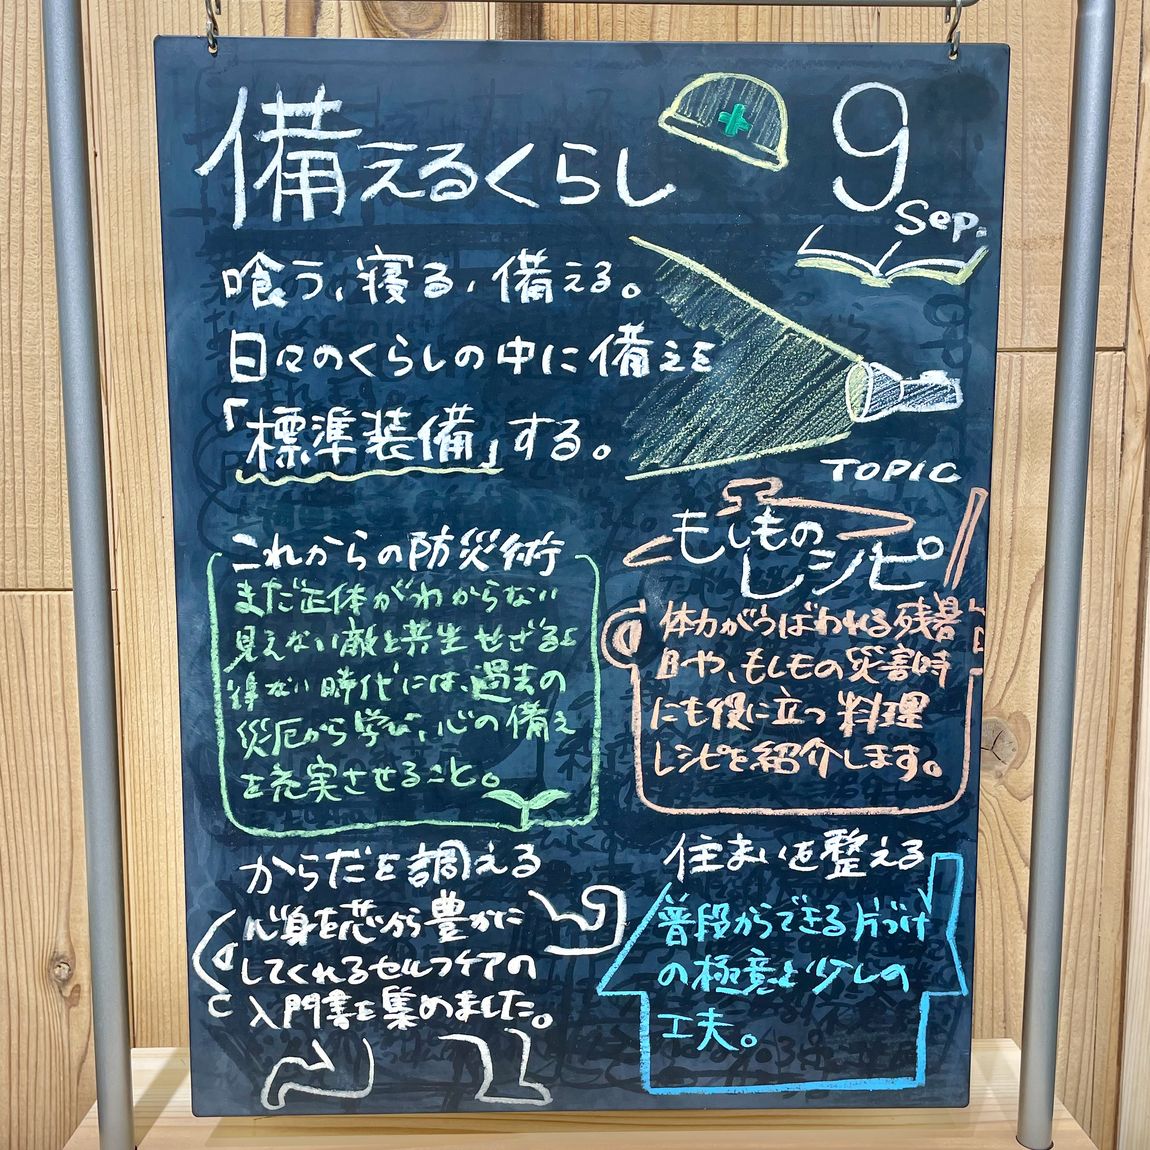 備えるくらし
9
Sep.
喰う、寝る、備える。
日々のくらしの中に備えを
「標準装備」する。
TOPIC
これからの防災術
まだ正体がわからない
見えない敵と共生せざるを
得ない時代には、過去の
災厄から学び、心の備え
を充実させること。
もしもの
レシピ
体力がうばわれる残暑
日や、もしもの災害時
にも役に立つ料理
レシピを紹介します。
からだを調える
心身を芯から豊かに
してくれるセルフケアの
入門書を集めました。
住まいを整える
普段からできる片づけ
の極意と少しの
工夫。